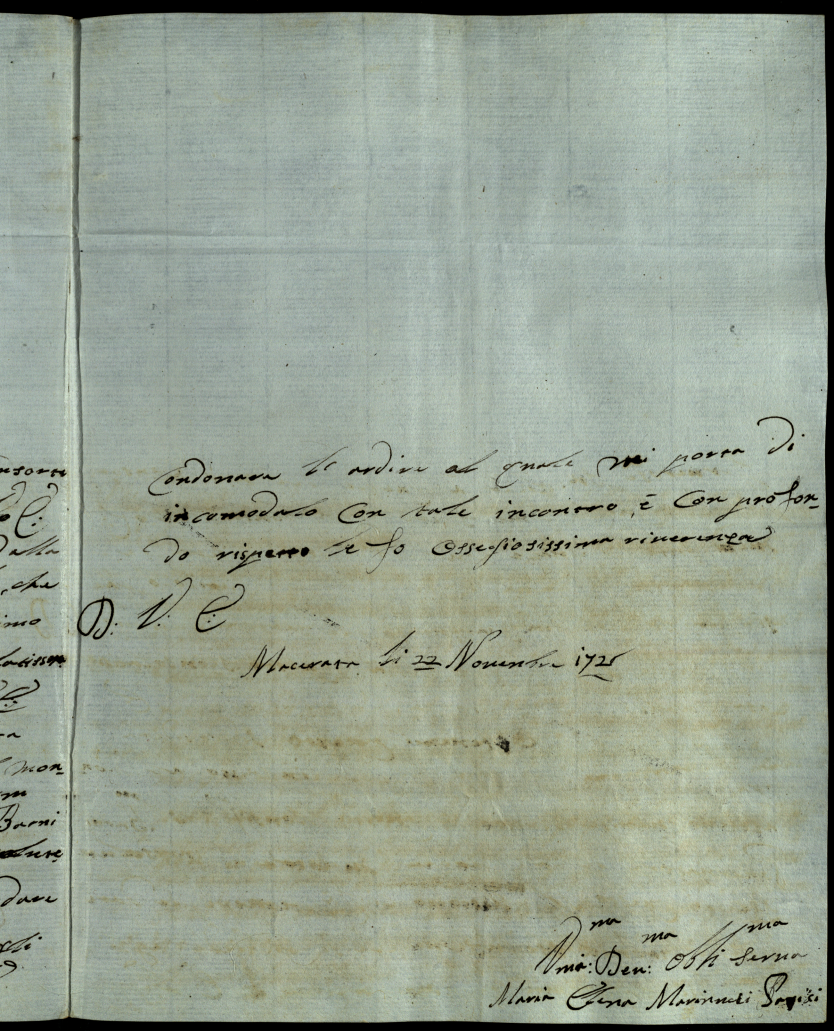 nsorte
C:
Dalla
, che
imo
ra
mon=
Barni
dare
condonare le ardire al quale mi porta di
incomodalo con tale incontro, è con profon=
do rispetto le fo ossequiosissima riverenza
D: V: E:
Macerata li 22 Novembre 172
ma ma ma
Vmi: Dev: Obbli Serva
Maria Elena Marinucci